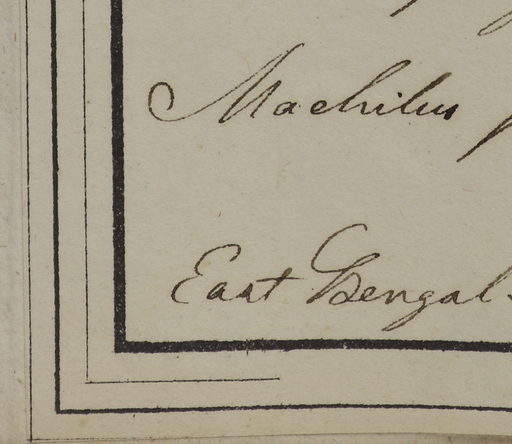 Machilus
East Bengal.